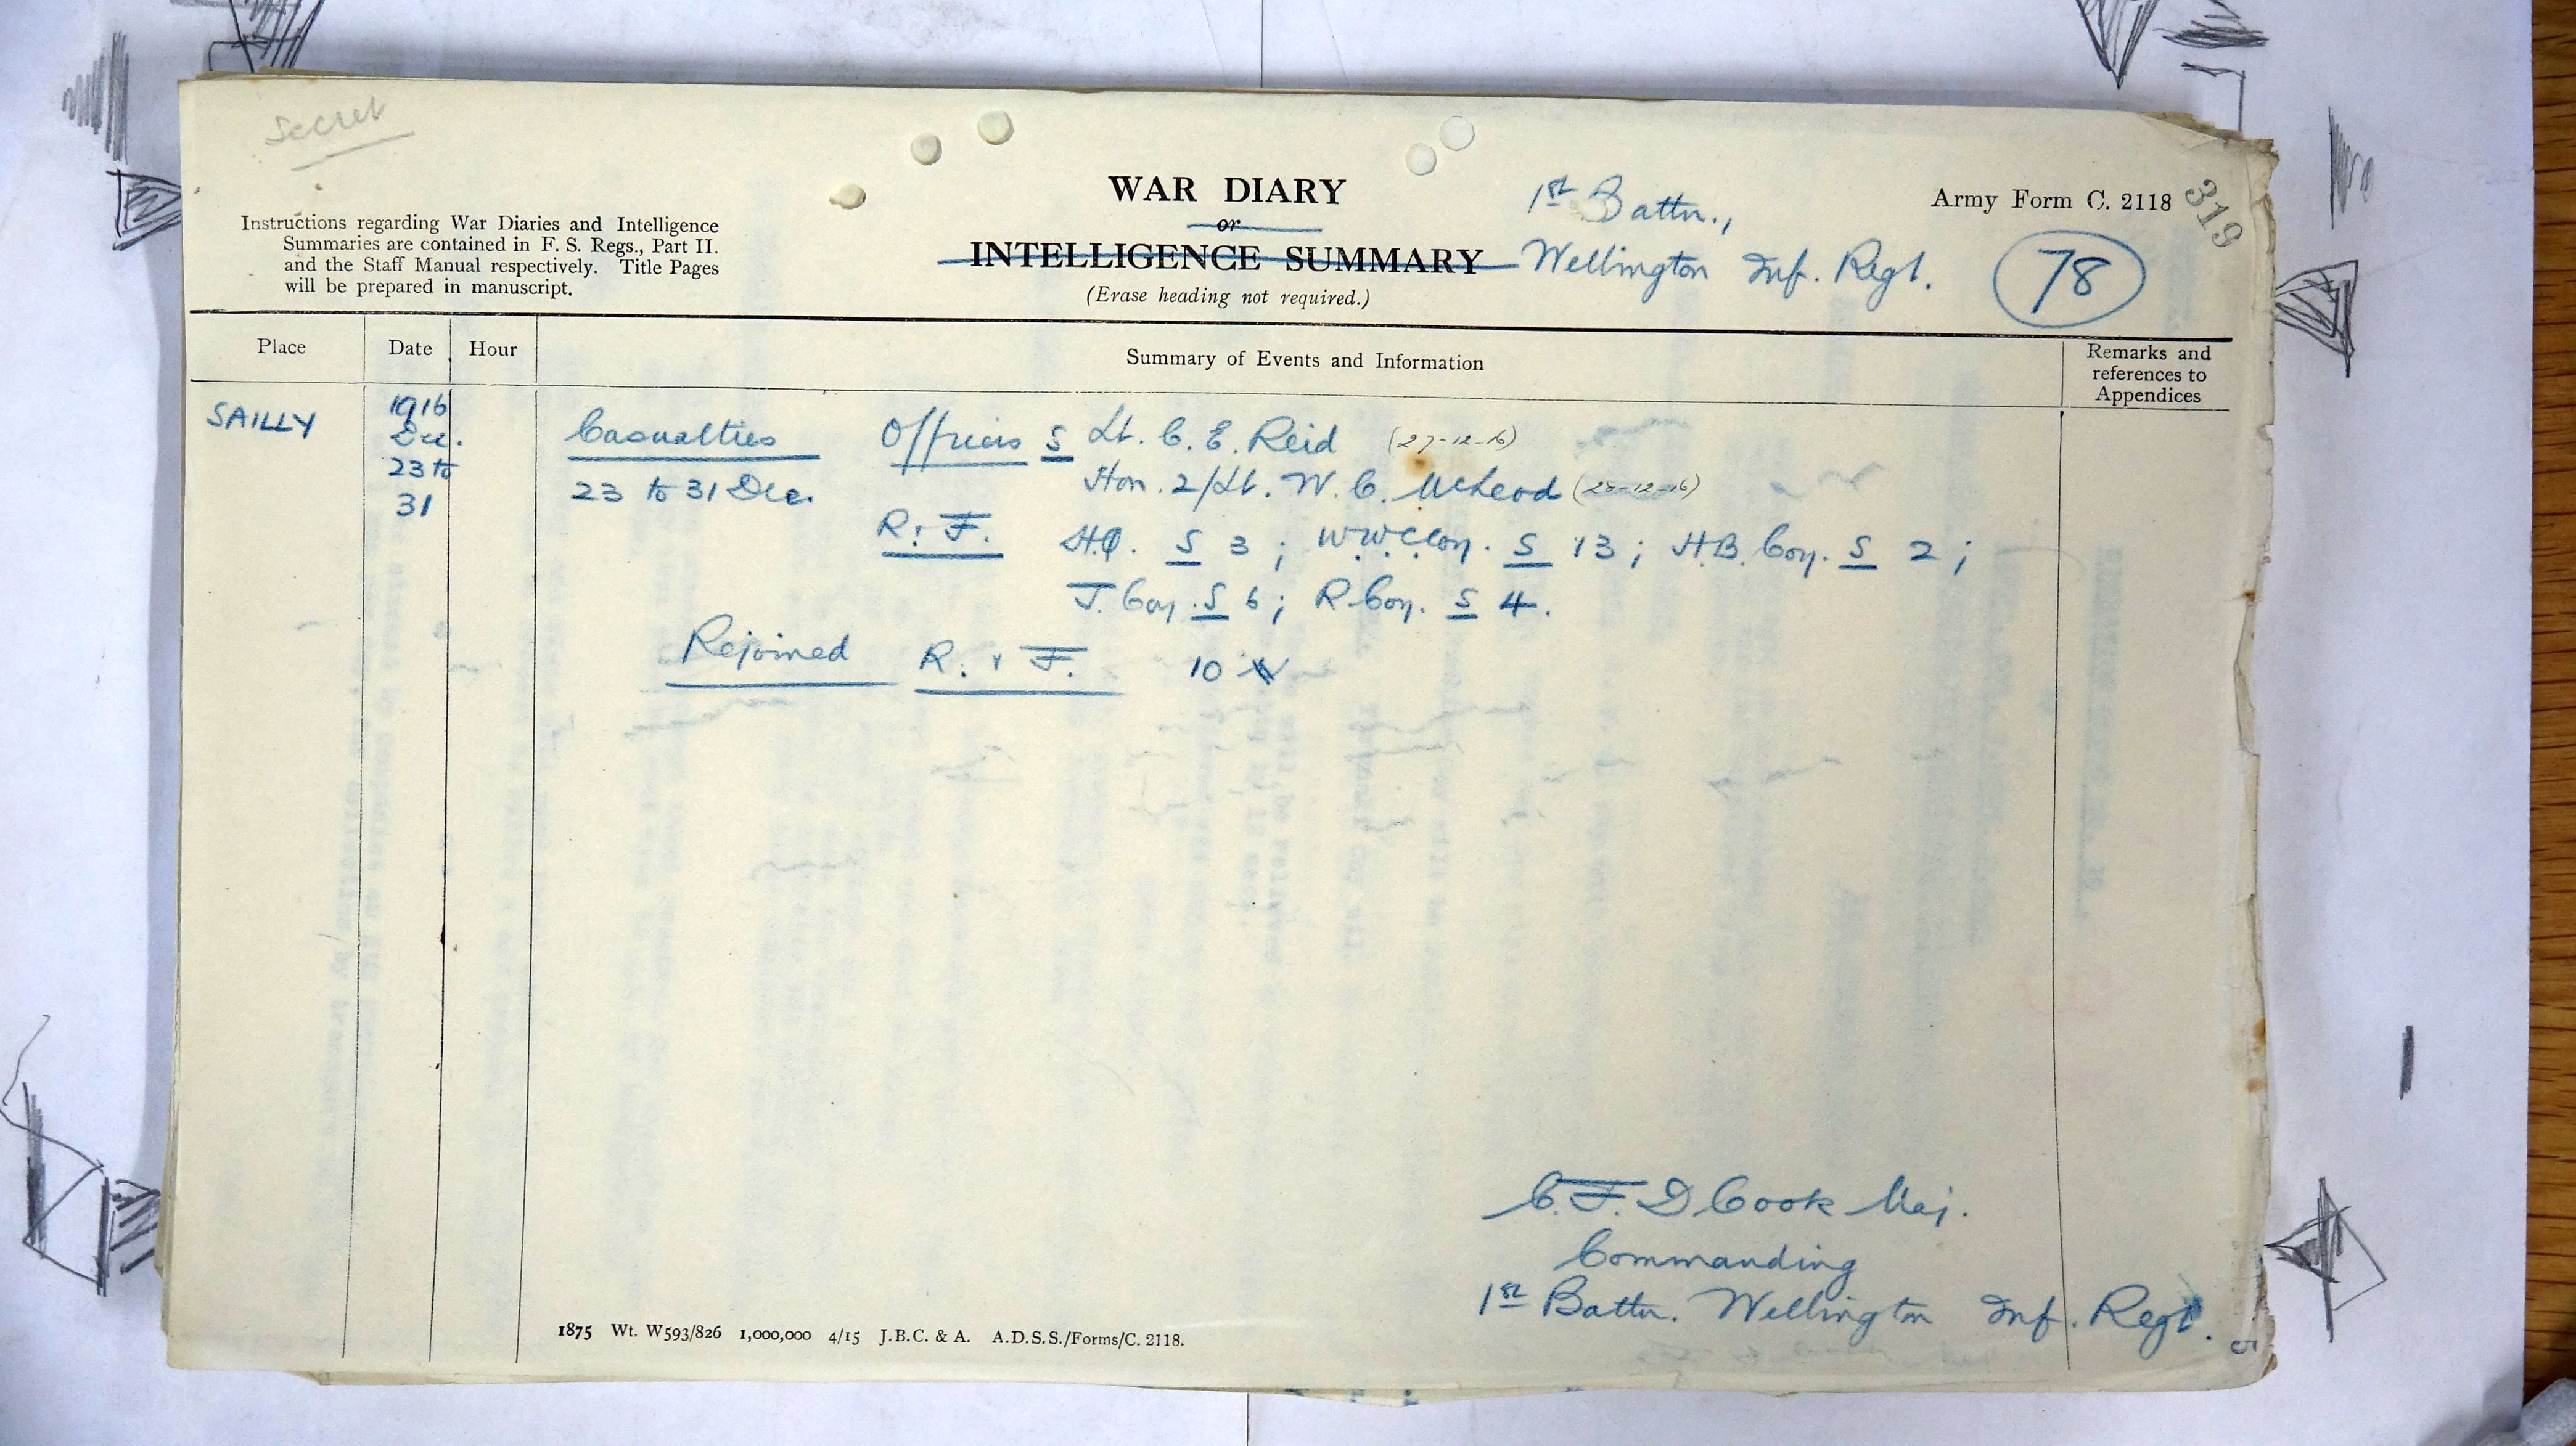 Secret
Instructions regarding War Diaries and Intelligence
Summaries are contained in F. S. Regs., Part II.
and the Staff Manual respectively. Title Pages
will be prepared in manuscript.
WAR DIARY
or
INTELLIGENCE SUMMARY
(Erase heading not required.)
1st Battn.,
Wellington Inf. Regt.
Army Form C. 2118
319
78
Place
Date
Hour
Summary of Events and Information
Remarks and
references to
Appendices
SAILLY
1916
Dec.
23 to
31
Casualties Officers S Lt. C. E. Reid (27-12-16)
23 to 31 Dec. Hon. 2/Lt. W. C. McLeod (28-12-16)
R. & F. H.Q. S 3; W.W.C. Coy. S 13; H.B. Coy. S 2;
J. Coy. S 6; R Coy. S 4.
Rejoined R. & F. 10
C. F. D Cook Maj.
Commanding
1st Battn. Wellington Inf. Regt.
1875 Wt. W593/826 1,000,000 4/15 J.B.C. & A. A.D.S.S./Forms/C. 2118.